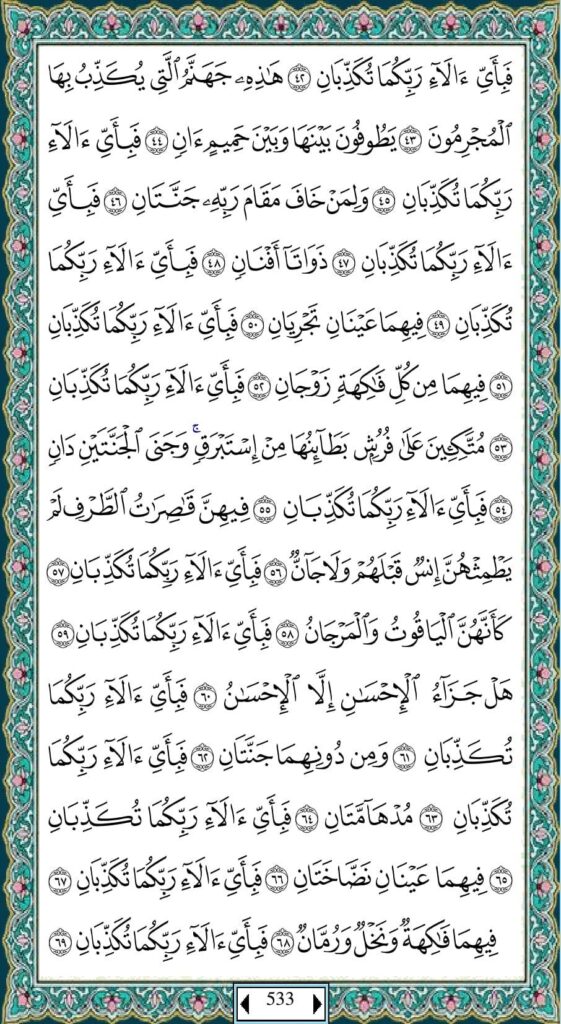 فَبِأَيِّ ءَالَآءِ رَبِّكُمَا تُكَذِّبَانِ ٤٢ هَٰذِهِۦ جَهَنَّمُ ٱلَّتِي يُكَذِّبُ بِهَا
ٱلْمُجْرِمُونَ ٤٣ يَطُوفُونَ بَيْنَهَا وَبَيْنَ حَمِيمٍ ءَانٍ ٤٤ فَبِأَيِّ ءَالَآءِ
رَبِّكُمَا تُكَذِّبَانِ ٤٥ وَلِمَنْ خَافَ مَقَامَ رَبِّهِۦ جَنَّتَانِ ٤٦ فَبِأَيِّ
ءَالَآءِ رَبِّكُمَا تُكَذِّبَانِ ٤٧ ذَوَاتَآ أَفْنَانٍ ٤٨ فَبِأَيِّ ءَالَآءِ رَبِّكُمَا
تُكَذِّبَانِ ٤٩ فِيهِمَا عَيْنَانِ تَجْرِيَانِ ٥٠ فَبِأَيِّ ءَالَآءِ رَبِّكُمَا تُكَذِّبَانِ
٥١ فِيهِمَا مِن كُلِّ فَٰكِهَةٍ زَوْجَانِ ٥٢ فَبِأَيِّ ءَالَآءِ رَبِّكُمَا تُكَذِّبَانِ
٥٣ مُتَّكِـِٔينَ عَلَىٰ فُرُشٍۭ بَطَآئِنُهَا مِنْ إِسْتَبْرَقٍ ۚ وَجَنَى ٱلْجَنَّتَيْنِ دَانٍ
٥٤ فَبِأَيِّ ءَالَآءِ رَبِّكُمَا تُكَذِّبَانِ ٥٥ فِيهِنَّ قَٰصِرَٰتُ ٱلطَّرْفِ لَمْ
يَطْمِثْهُنَّ إِنسٌ قَبْلَهُمْ وَلَا جَآنٌّ ٥٦ فَبِأَيِّ ءَالَآءِ رَبِّكُمَا تُكَذِّبَانِ ٥٧
كَأَنَّهُنَّ ٱلْيَاقُوتُ وَٱلْمَرْجَانُ ٥٨ فَبِأَيِّ ءَالَآءِ رَبِّكُمَا تُكَذِّبَانِ ٥٩
هَلْ جَزَآءُ ٱلْإِحْسَٰنِ إِلَّا ٱلْإِحْسَٰنُ ٦٠ فَبِأَيِّ ءَالَآءِ رَبِّكُمَا
تُكَذِّبَانِ ٦١ وَمِن دُونِهِمَا جَنَّتَانِ ٦٢ فَبِأَيِّ ءَالَآءِ رَبِّكُمَا
تُكَذِّبَانِ ٦٣ مُدْهَآمَّتَانِ ٦٤ فَبِأَيِّ ءَالَآءِ رَبِّكُمَا تُكَذِّبَانِ
٦٥ فِيهِمَا عَيْنَانِ نَضَّاخَتَانِ ٦٦ فَبِأَيِّ ءَالَآءِ رَبِّكُمَا تُكَذِّبَانِ ٦٧
فِيهِمَا فَٰكِهَةٌ وَنَخْلٌ وَرُمَّانٌ ٦٨ فَبِأَيِّ ءَالَآءِ رَبِّكُمَا تُكَذِّبَانِ ٦٩
533